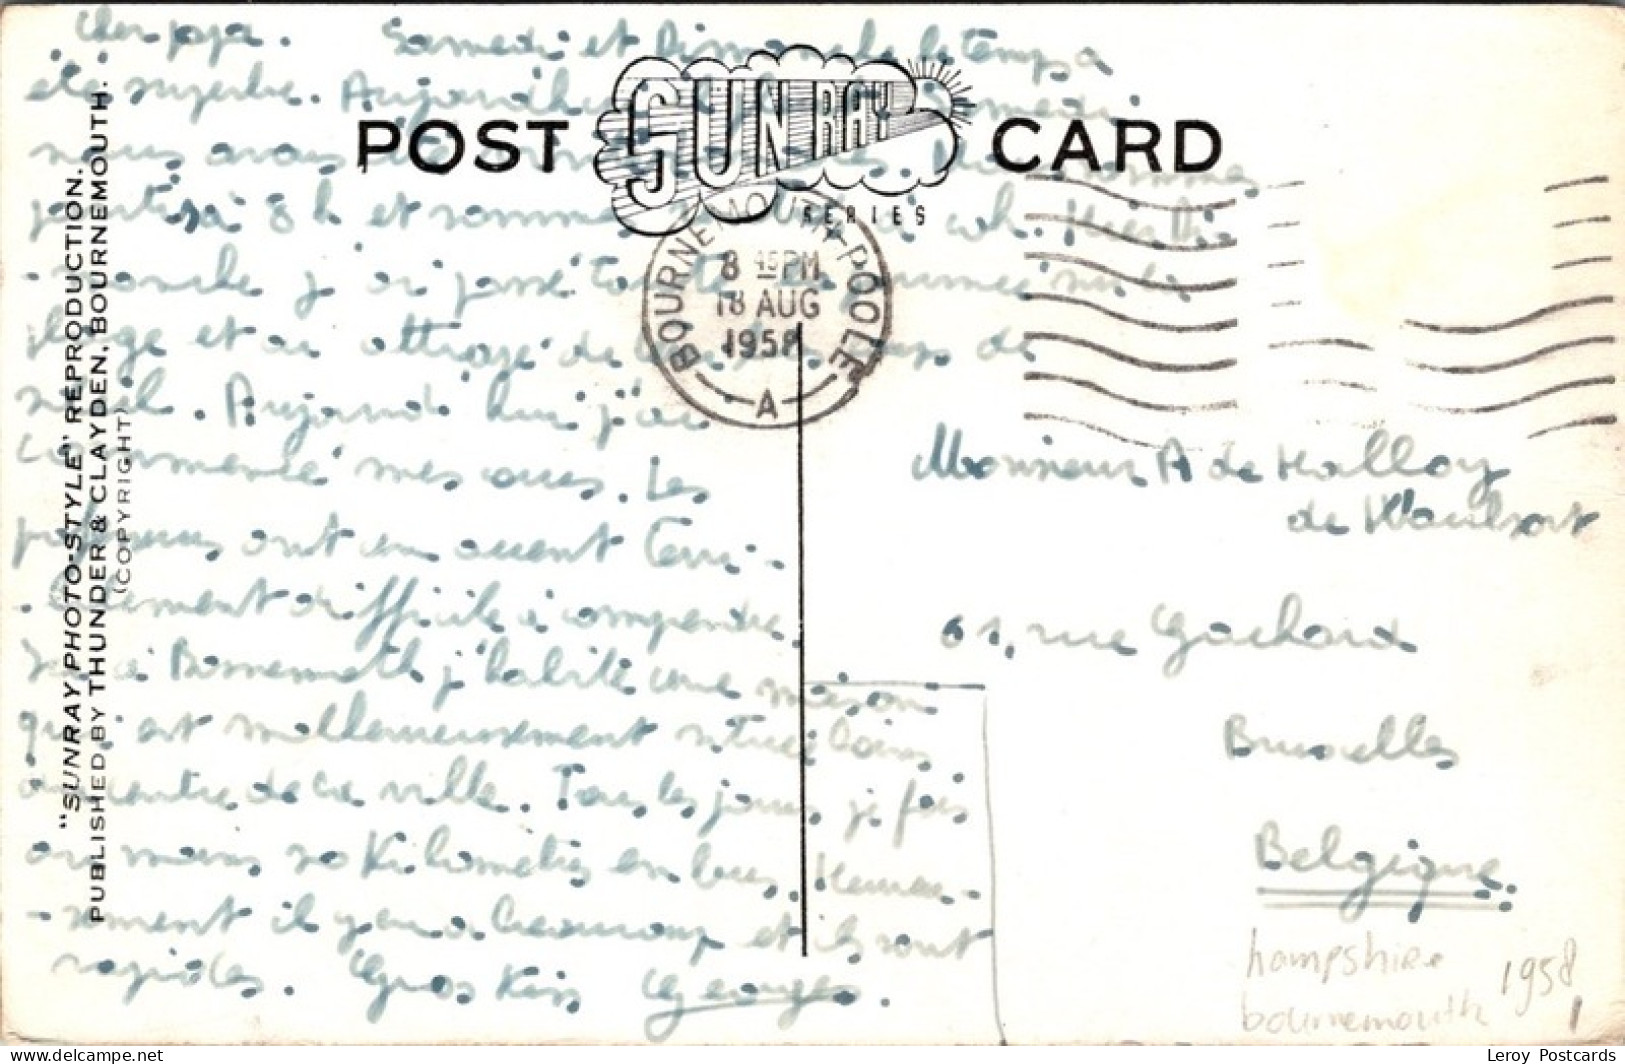 Cher papa. Samedi et Dimanche le temps a
été superbe. Aujourdhui Samedi
nous avons été
partis à 8 h et sommes à 20h. Hier Di-
manche j'ai passé toute la journée sur la
plage et ai attrapé de coups de
soleil. Aujourd'hui j'ai
commencé mes cours. Les
professeurs ont un accent terri-
blement difficile à comprendre.
Ici à Bournemouth j'habite une maison
qui est malheureusement située loin
du centre de la ville. Tous les jours je fais
au moins 20 Kilomètres en bus. Heureu-
-sement il y en a beaucoup et ils sont
rapides. Gros Kiss Georges.
POST CARD
SUNRAY
SERIES
BOURNEMOUTH-POOLE
8 45 PM
18 AUG
1958
A
"SUNRAY PHOTO-STYLE" REPRODUCTION.
PUBLISHED BY THUNDER & CLAYDEN, BOURNEMOUTH.
(COPYRIGHT)
Monsieur A de Halloy
de Waulsort
61, rue Gachard
Bruxelles
Belgique.
hampshire
bournemouth
1958
1
Leroy Postcards